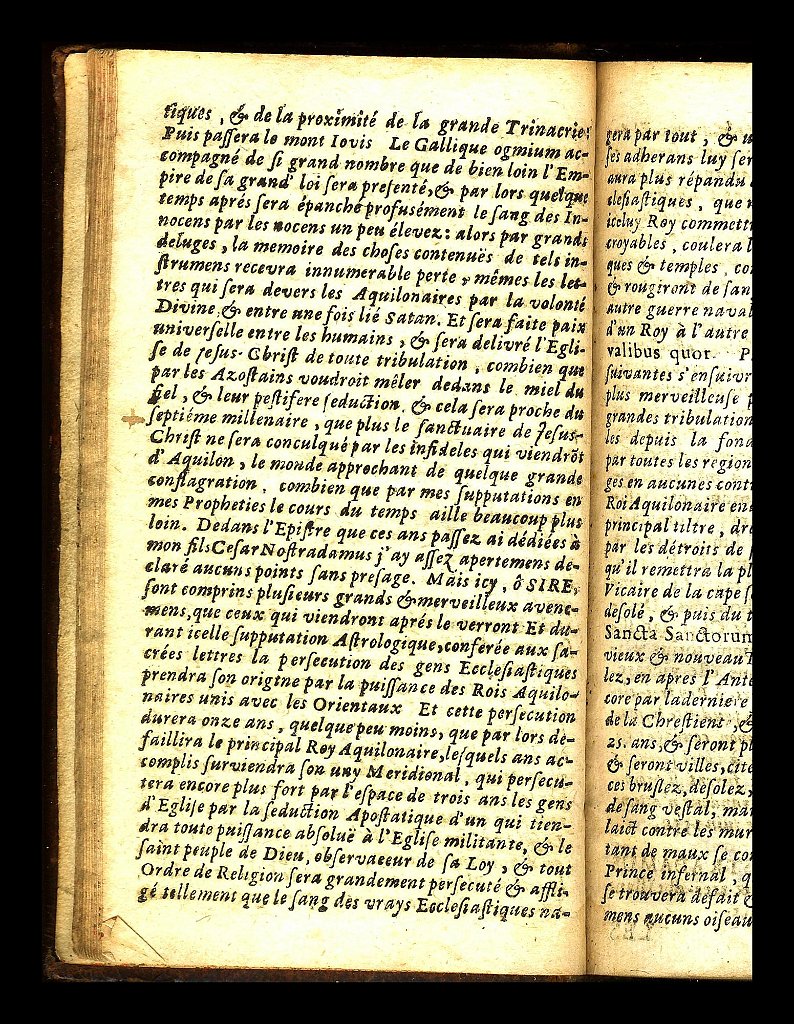 tiques, & de la proximité de la grande Trinacrie!
Puis passera le mont Iovis Le Gallique ogmium ac-
compagné de si grand nombre que de bien loin l'Em-
pire de sa grand' loi sera presenté, & par lors quelque
temps aprés sera épanché profusément le sang des In-
nocens par les nocens un peu élevez: alors par grands
deluges, la memoire des choses contenuës de tels in-
strumens recevra innumerable perte, mêmes les let-
tres qui sera devers les Aquilonaires par la volonté
Divine, & entre une fois lié Satan. Et sera faite paix
universelle entre les humains, & sera delivré l'Egli-
se de Jesus-Christ de toute tribulation, combien que
par les Azostains voudroit mêler dedans le miel du
fiel, & leur pestifere seduction. & cela sera proche du
septiéme millenaire, que plus le sanctuaire de Jesus-
Christ ne sera conculqué par les infideles qui viendrõt
d'Aquilon, le monde approchant de quelque grande
conflagration, combien que par mes supputations en
mes Propheties le cours du temps aille beaucoup plus
loin. Dedans l'Epistre que ces ans passez ai dédiées à
mon fils Cesar Nostradamus j'ay assez apertemens de-
claré aucuns points sans presage. Mais icy, ô SIRE,
sont comprins plusieurs grands & merveilleux avene-
mens, que ceux qui viendront aprés le verront Et du-
rant icelle supputation Astrologique, conferée aux sa-
crées lettres la persecution des gens Ecclesiastiques
prendra son origine par la puissance des Rois Aquilo-
naires unis avec les Orientaux Et cette persecution
durera onze ans, quelque peu moins, que par lors de-
faillira le principal Roy Aquilonaire, lesquels ans ac-
complis surviendra son uny Meridional, qui persecu-
tera encore plus fort par l'espace de trois ans les gens
d'Eglise par la seduction Apostatique d'un qui tien-
dra toute puissance absoluë à l'Eglise militante, & le
saint peuple de Dieu, observateur de sa Loy, & tout
Ordre de Religion sera grandement persecuté & affli-
gé tellement que le sang des vrays Ecclesiastiques na-
gera par tout, &
ses adherans luy ser
aura plus répandu
clesiastiques, que
iceluy Roy commett
croyables, coulera l
ques & temples, co
& rougiront de san
autre guerre naval
d'un Roy à l'autre
valibus quot. P
suivantes s'ensuivr
plus merveilleuse
grandes tribulation
les depuis la fond
par toutes les region
ges en aucunes cont
Roi Aquilonaire en
principal tiltre, dr
par les détroits de
qu'il remettra la pl
Vicaire de la cape
desolé, & puis du
Sancta Sanctorum
vieux & nouveau T
lez, en apres l'Ante
core par la derniere
de la Chrestient, &
25. ans, & seront pl
& seront villes, cite
ces bruslez, desolez,
de sang vestal, mar
laict contre les mur
tant de maux se co
Prince infernal, q
se trouvera defait &
mens aucuns oiseau